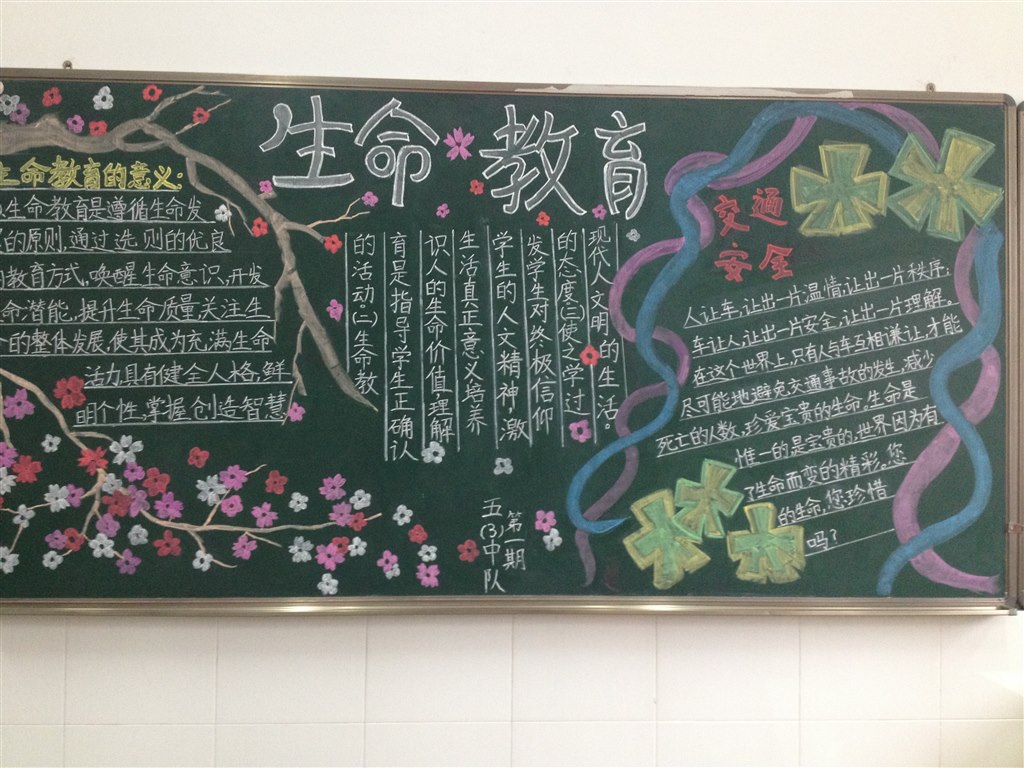 生命教育
生命教育的意义:
生命教育是遵循生命发
的原则,通过选 则的优良
教育方式,唤醒生命意识,开发
命潜能,提升生命质量关注生
的整体发展,使其成为充满生命
活力具有健全人格,鲜
明个性,掌握创造智慧
的活动.(二)生命教
育是指导学生正确认
识人的生命价值,理解
生活真正意义培养
学生的人文精神,激
发学生对终极信仰
的态度(三)使之学过
现代人文明的生活。
第一期
五(3)中队
交通
安全
人让车,让出一片温情;让出一片秩序;
车让人,让出一片安全,让出一片理解。
在这个世界上,只有人与车互相谦让,才能
尽可能地避免交通事故的发生,减少
死亡的人数,珍爱宝贵的生命。生命是
惟一的是宝贵的,世界因为有
了生命而变的精彩。您
的生命,您珍惜
吗?